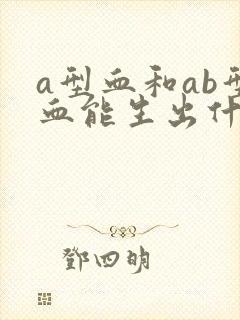 a型血和ab型
血能生出什
鄧四明